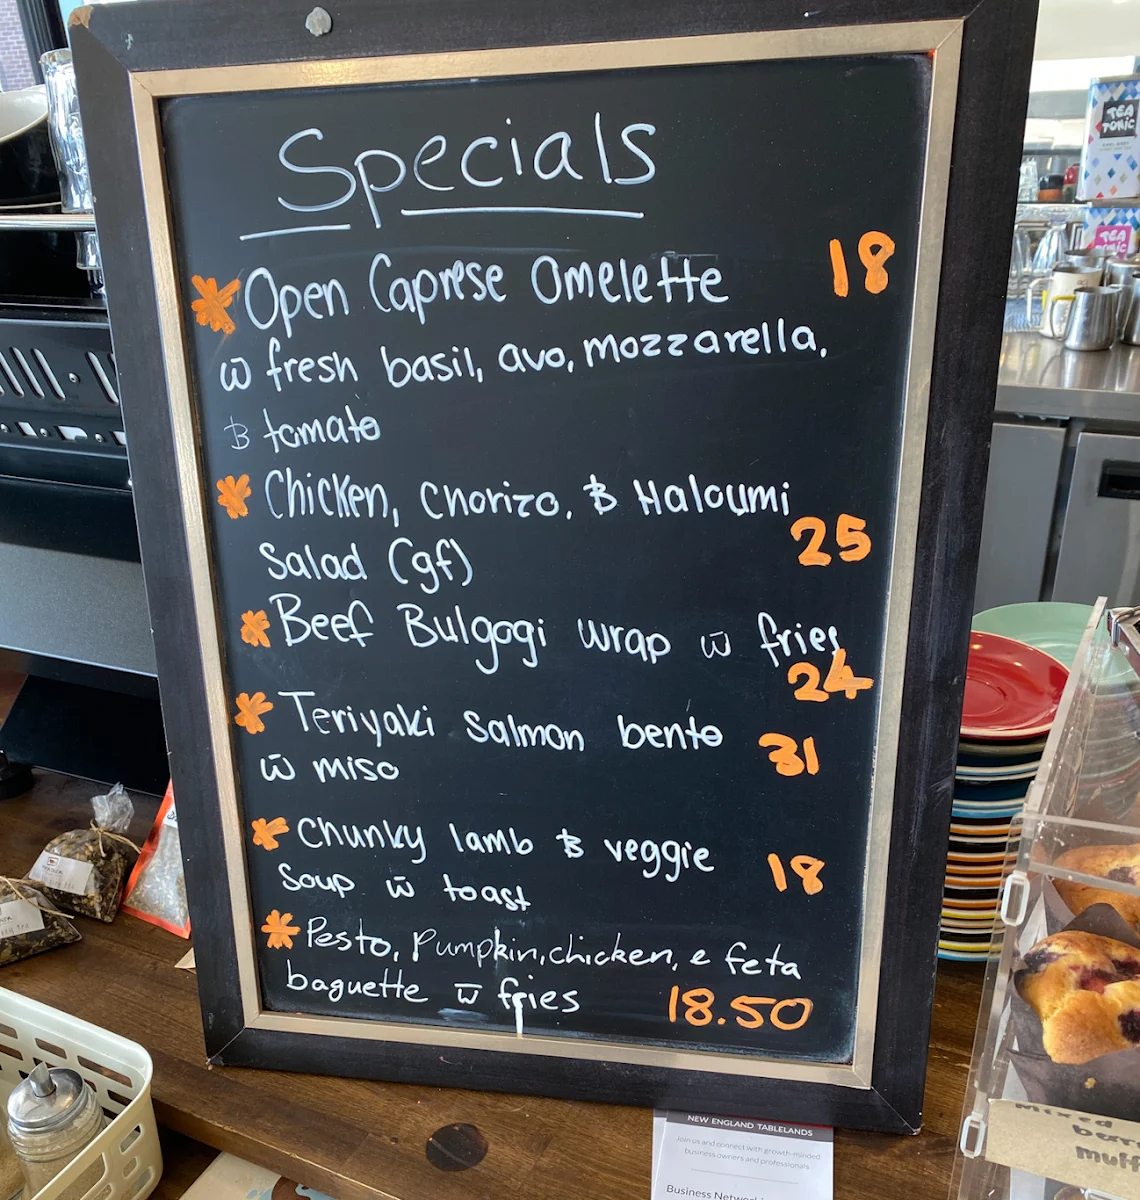 Specials
Open Caprese Omelette 18
w̄ fresh basil, avo, mozzarella,
& tomato
Chicken, Chorizo, & Haloumi
Salad (gf) 25
Beef Bulgogi wrap w̄ fries
24
Teriyaki Salmon bento 31
w̄ miso
Chunky lamb & veggie
Soup w̄ toast 18
Pesto, Pumpkin, chicken, e feta
baguette w̄ fries 18.50
TEA
TONIC
TEA
TONIC
NEW ENGLAND TABLELANDS
Join us and connect with growth-minded
business owners and professionals
Business
mixed
berry
muff